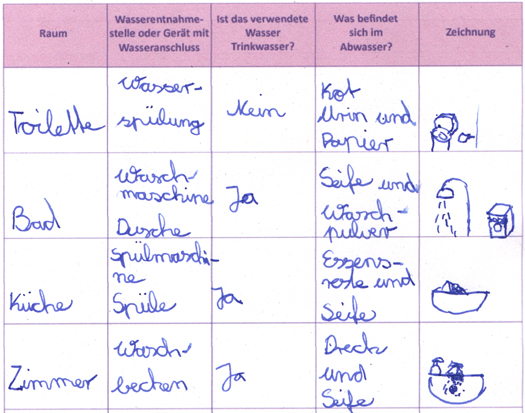 Raum
Wasserentnahme-
stelle oder Gerät mit
Wasseranschluss
Ist das verwendete
Wasser
Trinkwasser?
Was befindet
sich im
Abwasser?
Zeichnung
Toilette
Wasser-
spülung
Nein
Kot
Urin und
Papier
Bad
Wasch-
maschine
Dusche
Ja
Seife und
Wasch-
pulver
Küche
Spülmaschi-
ne
Spüle
Ja
Essens-
reste und
Seife
Zimmer
Wasch-
becken
Ja
Dreck
und
Seife